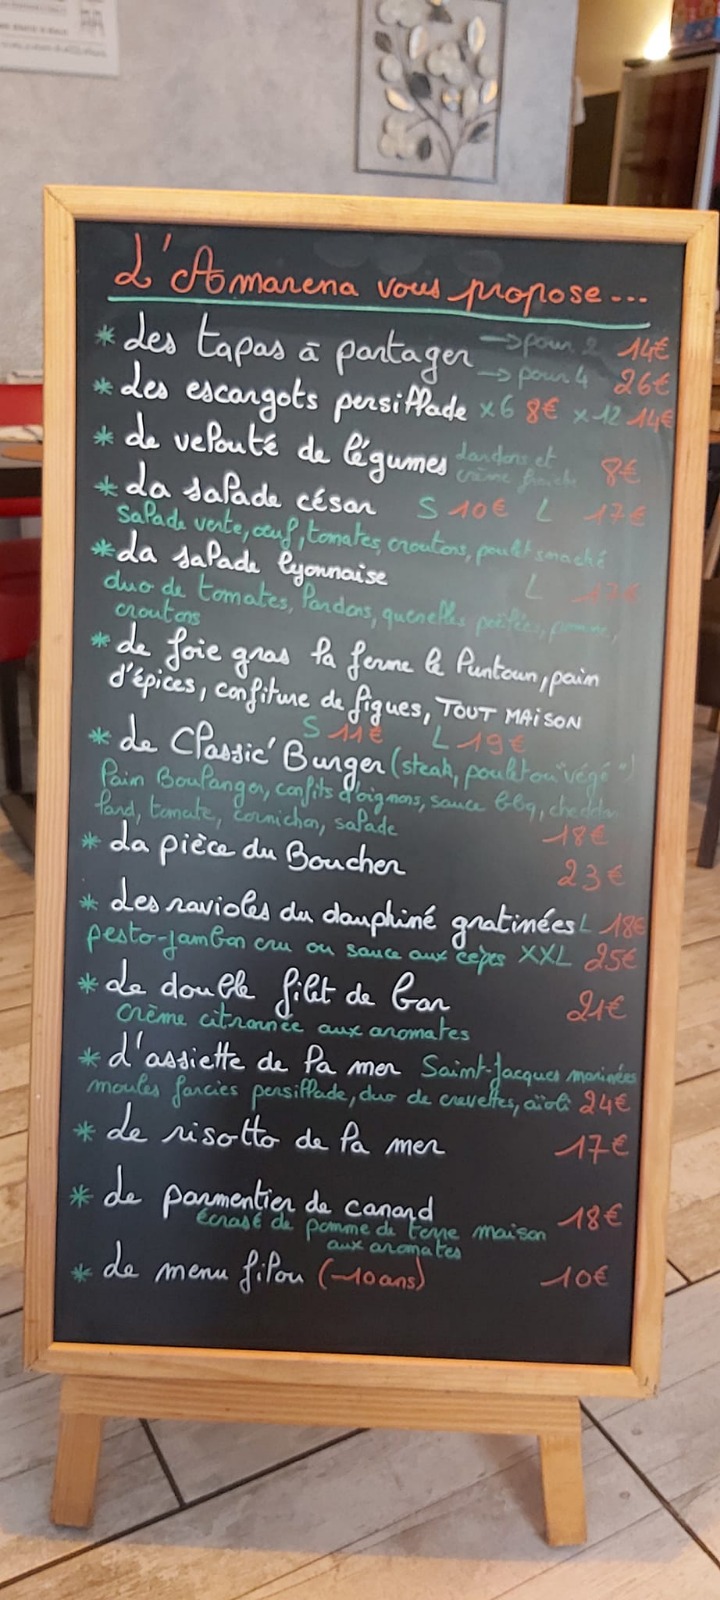 L'Amarena vous propose...
* Les tapas à partager → pour 2 14€
→ pour 4 26€
* Les escargots persillade x6 8€ x12 14€
* Le velouté de légumes lardons et crème fraîche 8€
* La salade césar S 10€ L 17€
salade verte, œuf, tomates, croutons, poulet
* La salade lyonnaise L 17€
duo de tomates, lardons, quenelles poêlées, pomme,
croutons
* Le foie gras la ferme le Puntoun, pain
d'épices, confiture de figues, TOUT MAISON
S 11€ L 19€
* Le Classic' Burger (steak, poulet ou "végé")
Pain Boulanger, confits d'oignons, sauce bbq, cheddar
lard, tomate, cornichon, salade 18€
* La pièce du Boucher 23€
* Les ravioles du dauphiné gratinées L 18€
pesto-jambon cru ou sauce aux cèpes XXL 25€
* Le double filet de bar 21€
crème citronnée aux aromates
* L'assiette de la mer Saint-Jacques marinées
moules farcies persillade, duo de crevettes, aïoli 24€
* Le risotto de la mer 17€
* Le parmentier de canard 18€
écrasé de pomme de terre maison
aux aromates
* Le menu filou (-10ans) 10€